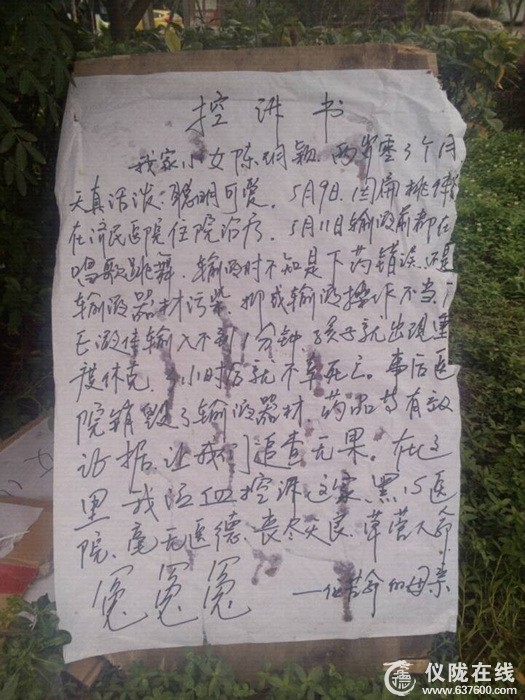 控诉书
我家小女陈炯颖，两岁零3个月
天真活泼，聪明可爱。5月9日，因扁桃体
在济民医院住院治疗。5月11日输液前都在
唱歌跳舞，输液时不知是下药错误，还是
输液器材污染，抑或输液操作不当，
液体输入不到1分钟，孩子就出现重
度休克，小时后就不幸死亡。事后医
院销毁了输液器材，药品等有效
证据，让我们追查无果。在这
里我泣血控诉这家黑心医
院，毫无医德，丧尽天良，草菅人命
冤冤冤
一位苦命的母亲
仪陇在线
www.637600.com